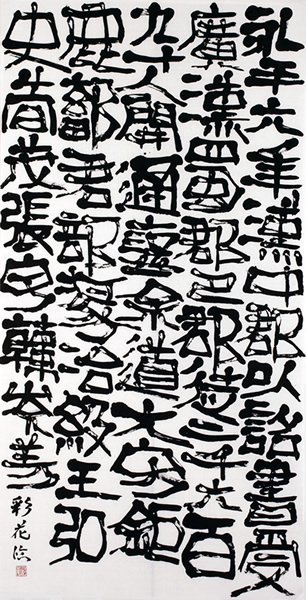 永平六年漢中郡以詔書受
廣漢蜀郡巴郡徒二千六百
九十人開通褒余道大守鉅
鹿鄐君部掾治級王弘
史荀茂張宇韓岑等
彩花臨